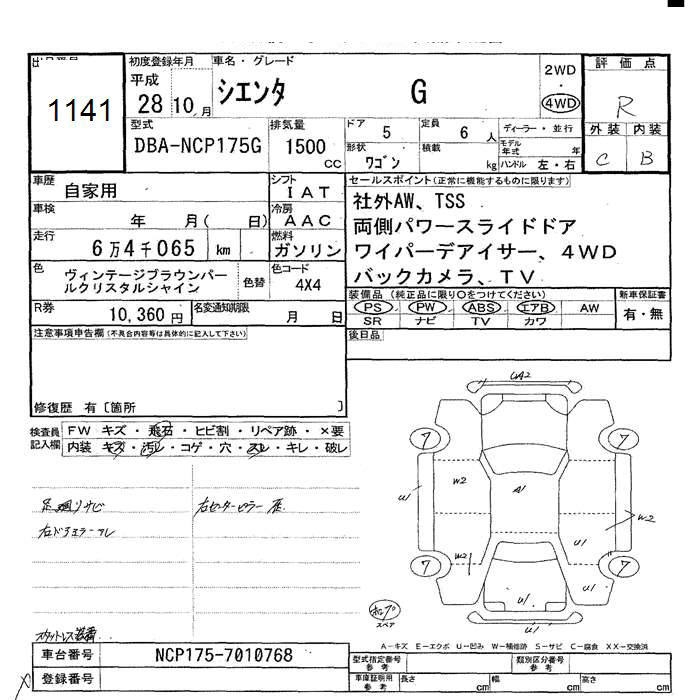 1141
初度登録年月 車名・グレード
平成 28 10 月 シエンタ G
2WD
・
4WD
評価点
R
外装 内装
C B
型式 DBA-NCP175G
排気量 1500 CC
ドア 5 定員 6 人
形状 ワゴン 積載 kg
ディーラー・並行
モデル年式 年
ハンドル 左・右
車歴 自家用
シフト IAT
車検 年 月( 日)
冷房 AAC
走行 6万4千065 km
燃料 ガソリン
色 ヴィンテージブラウンパールクリスタルシャイン
色替
色コード 4X4
R券 10,360円
名変通知期限 月 日
セールスポイント(正常に機能するものに限ります)
社外AW、TSS
両側パワースライドドア
ワイパーデアイサー、4WD
バックカメラ、TV
装備品(純正品に限り○をつけてください)
PS PW ABS エアB AW
SR ナビ TV カワ
新車保証書
有・無
後日品
注意事項申告欄(不具合内容等は具体的に記入して下さい)
修復歴 有〔箇所 〕
検査員記入欄
FW キズ・飛石・ヒビ割・リペア跡・×要
内装 キズ・汚レ・コゲ・穴・スレ・キレ・破レ
足廻りサビ
右センターピラー
右ドアミラー
スペア
W2
A1
U1
W2
W2
U1
U1
U1
U1
A-キズ E-エクボ U-凹み W-補修跡 S-サビ C-腐食 XX-交換済
車台番号 NCP175-7010768
登録番号
型式指定番号 参考
類別区分番号 参考
車庫証明用 参考
長さ cm 幅 cm 高さ cm